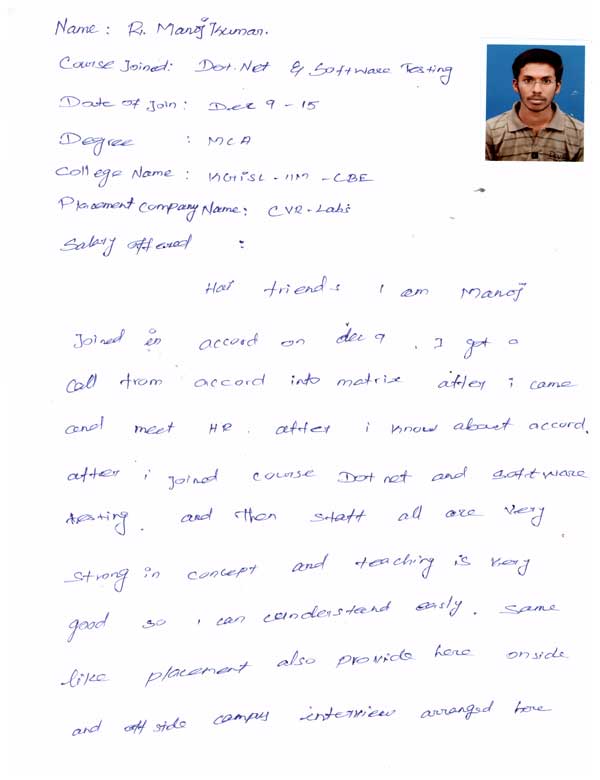 Name : R. Manoj Kumar.
Course Joined : Dot.Net & Software Testing
Date of Join : Dec 9 - 15
Degree : MCA
College Name : KGiSL - IIM - CBE
Placement Company Name : CVR - Labs
Salary offered :
Hai friends I am Manoj
Joined in accord on dec 9 . I got a
call from accord into matrix after i came
and meet HR . after i know about accord.
after i joined course Dot net and software
testing. and then staff all are very
strong in concept and teaching is very
good so i can understand easly. same
like placement also provide here onside
and off side campus interview arranged here